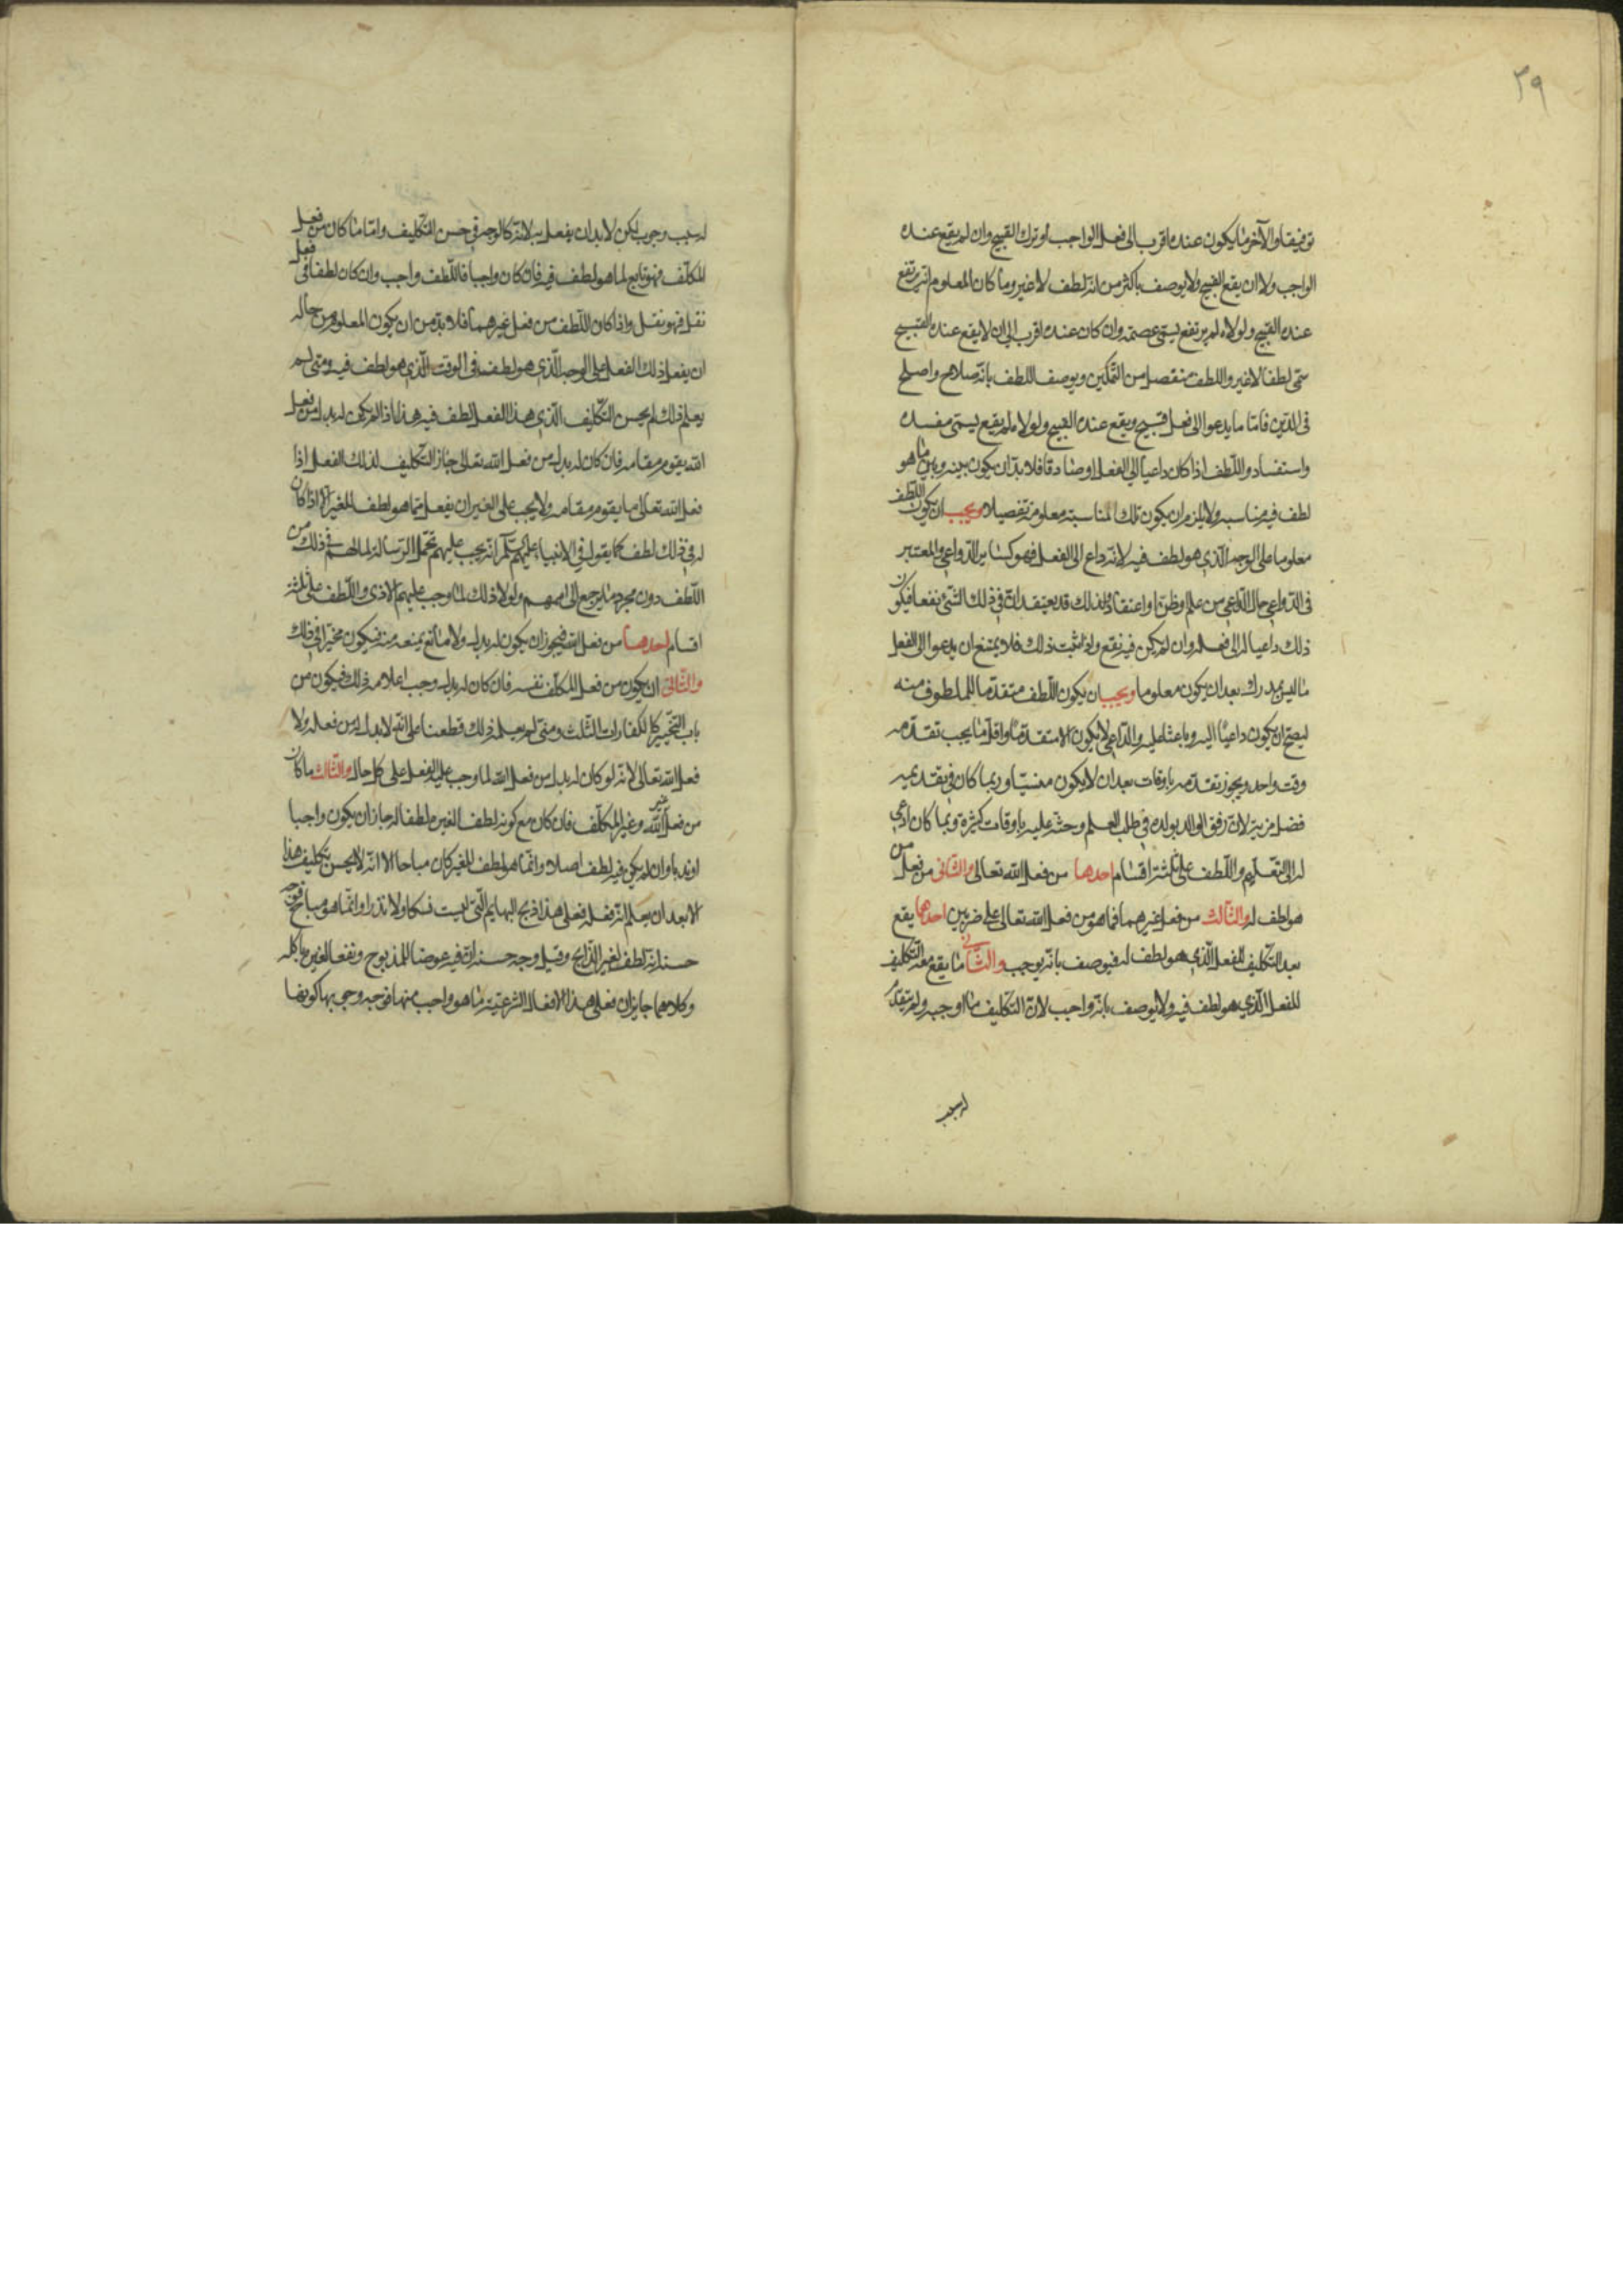 ٣٩
توفيقا والآخر ما يكون عنده اقرب الى فعل الواجب او ترك القبيح وان لم يقع عنده
الواجب ولا ان يقع القبيح ولا يوصف باكثر من انه لطف لا غير وما كان المعلوم انه يرتفع
عنده القبيح ولولاه لم يرتفع يسمى عصمة وان كان عنده اقرب الى ان لا يقع عنده القبيح
سمى لطفا لا غير واللطف منفصل من التمكين ويوصف اللطف بانه صلاح واصلح
فى الدين فاما ما يدعوا الى فعل قبيح ويقع عنده القبيح ولولاه لم يقع يسمى مفسدة
واستفساد واللطف اذا كان داعيا الى الفعل او صادقا فلا بد ان يكون بينه وبين ما هو
لطف فيه مناسبه ولا يلزم ان يكون تلك المناسبة معلومة تفصيلا ويجب ان يكون اللطف
معلوما على الوجه الذى هو لطف فيه لانه داع الى الفعل فهو كساير الدواعى والمعتبر
فى الدواعى حال الداعى من علم او ظن او اعتقاد ولذلك قد يعتقد ان فى ذلك الشئ نفعا فيكون
ذلك داعيا له الى فعله وان لم يكن فيه نفع واذا ثبت ذلك فلا يمتنع ان يدعوا الى الفعل
ما ليس بمدرك بعد ان يكون معلوما ويجب ان يكون اللطف متقدما للملطوف منه
ليصح ان يكون داعيا اليه وباعثا عليه والداعى لا يكون الا متقدما واقل ما يجب تقدمه
وقت واحد ويجوز تقدمه باوقات بعد ان لا يكون منسيا وربما كان فى تقديمه
فضل مزية لان رفق الوالد بولده فى طلب العلم وحثه عليه باوقات كثيرة ربما كان ادعى
له الى التعليم واللطف على ثلثة اقسام احدها من فعل الله تعالى والثانى من فعل من
هو لطف له والثالث من فعل غيرهما فما هو من فعل الله تعالى على ضربين احدهما يقع
بعد التكليف للفعل الذى هو لطف له فيوصف بانه يوجب والثانى ما يقع معه التكليف
للفعل الذى هو لطف فيه ولا يوصف بانه واجب لان التكليف ما اوجبه ولم يتقدم
له سبب
له سبب وجوب لكن لا بد ان يفعل به لانه كالوجه فى حسن التكليف واما ما كان من فعل
المكلف فهو تابع لما هو لطف فيه فان كان واجبا فاللطف واجب وان كان لطفا فى فعل
نفل فهو نفل واذا كان اللطف من فعل غيرهما فلا بد من ان يكون المعلوم من حاله
ان يفعل ذلك الفعل على الوجه الذى هو لطف فى الوقت الذى هو لطف فيه ومتى لم
يعلم ذلك لم يحسن التكليف الذى هذا الفعل لطف فيه هذا اذا لم يكن له بدل من فعل
الله يقوم مقامه فان كان له بدل من فعل الله تعالى جاز التكليف لذلك الفعل اذا
فعل الله تعالى ما يقوم مقامه ولا يجب على الغير ان يفعل ما هو لطف للغير الا اذا كان
له فى ذلك لطف كما يقول فى الانبياء عليهم السلم انه يجب عليهم تحمل الرسالة لما لهم فى ذلك من
اللطف دون مجرد ما يرجع الى اممهم ولولا ذلك لما وجب عليهم الاذى واللطف على ثلثة
اقسام احدها من فعل الله فيجوز ان يكون له بدل ولا مانع يمنعه منه فيكون مخيرا فى ذلك
والثانى ان يكون من فعل المكلف نفسه فان كان له بدل وجب اعلامه ذلك فيكون من
باب التخيير كالكفارات الثلث ومتى لم يعلمه ذلك قطعنا على انه لا بدل له من فعله ولا
فعل الله تعالى لانه لو كان له بدل من فعل الله لما وجب عليه الفعل على كل حال والثالث ما كان
من فعل غير الله وغير المكلف فان كان مع كونه لطف الغير لطفا له جاز ان يكون واجبا
او ندبا وان لم يكن فيه لطف اصلا وانما هو لطف للغير كان مباحا الا انه لا يحسن تكليف هذا
الا بعد ان يعلم انه فعله فعلى هذا ذبح البهايم التى ليست نسكا ولا نذرا وانما هو مباح فوجه
حسنه انه لطف لغير الذابح وقيل وجه حسنه ان فيه عوضا للمذبوح ونفعا لغيره باكله
وكلاهما جايزان فعلى هذا الافعال الشرعية ما هو واجب منها فوجه وجوبها كونها